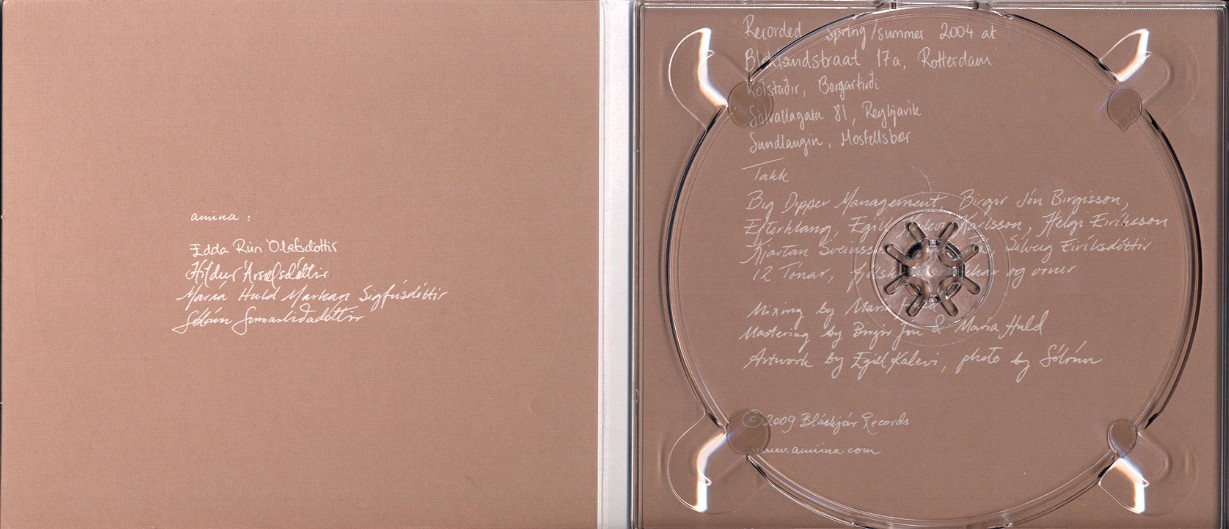 amina :
Edda Rún Ólafsdóttir
Hildur Ársælsdóttir
María Huld Markan Sigfúsdóttir
Sólrún Sumarliðadóttir
Recorded Spring/summer 2004 at
Bloklandstraat 17a, Rotterdam
Kolstaðir, Borgarfirði
Sólvallagata 81, Reykjavík
Sundlaugin, Mosfellsbær
Takk
Big Dipper Management, Birgir Jón Birgisson,
Efterklang, Egill Karlsson, Helgi Eiríksson
Kjartan Sveinsson Sólveig Eiríksdóttir
12 Tónar, og vinir
Mixing by María
Mastering by Birgir Jón & María Huld
Artwork by Egill Kalevi, photo by Sólrún
© 2009 Bláskjár Records
www.amiina.com